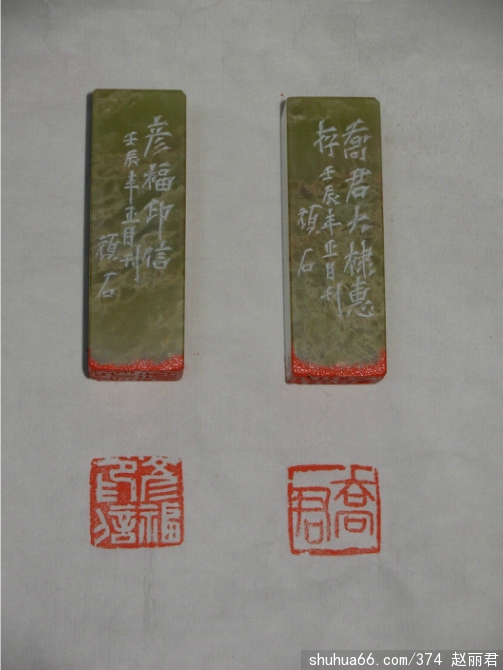 彦福印信
壬辰年正月刊
頑石
喬君大棣惠
存 壬辰年正月刊
頑石
彦福
印信
喬
君
shuhua66.com/374 赵丽君